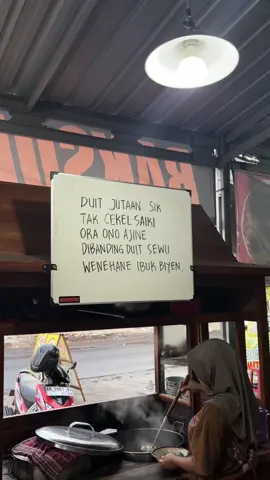 DUIT JUTAAN SIK
TAK CEKEL SAIKI
ORA ONO AJINE
DIBANDING DUIT SEWU
WENEHANE IBUK BIYEN.